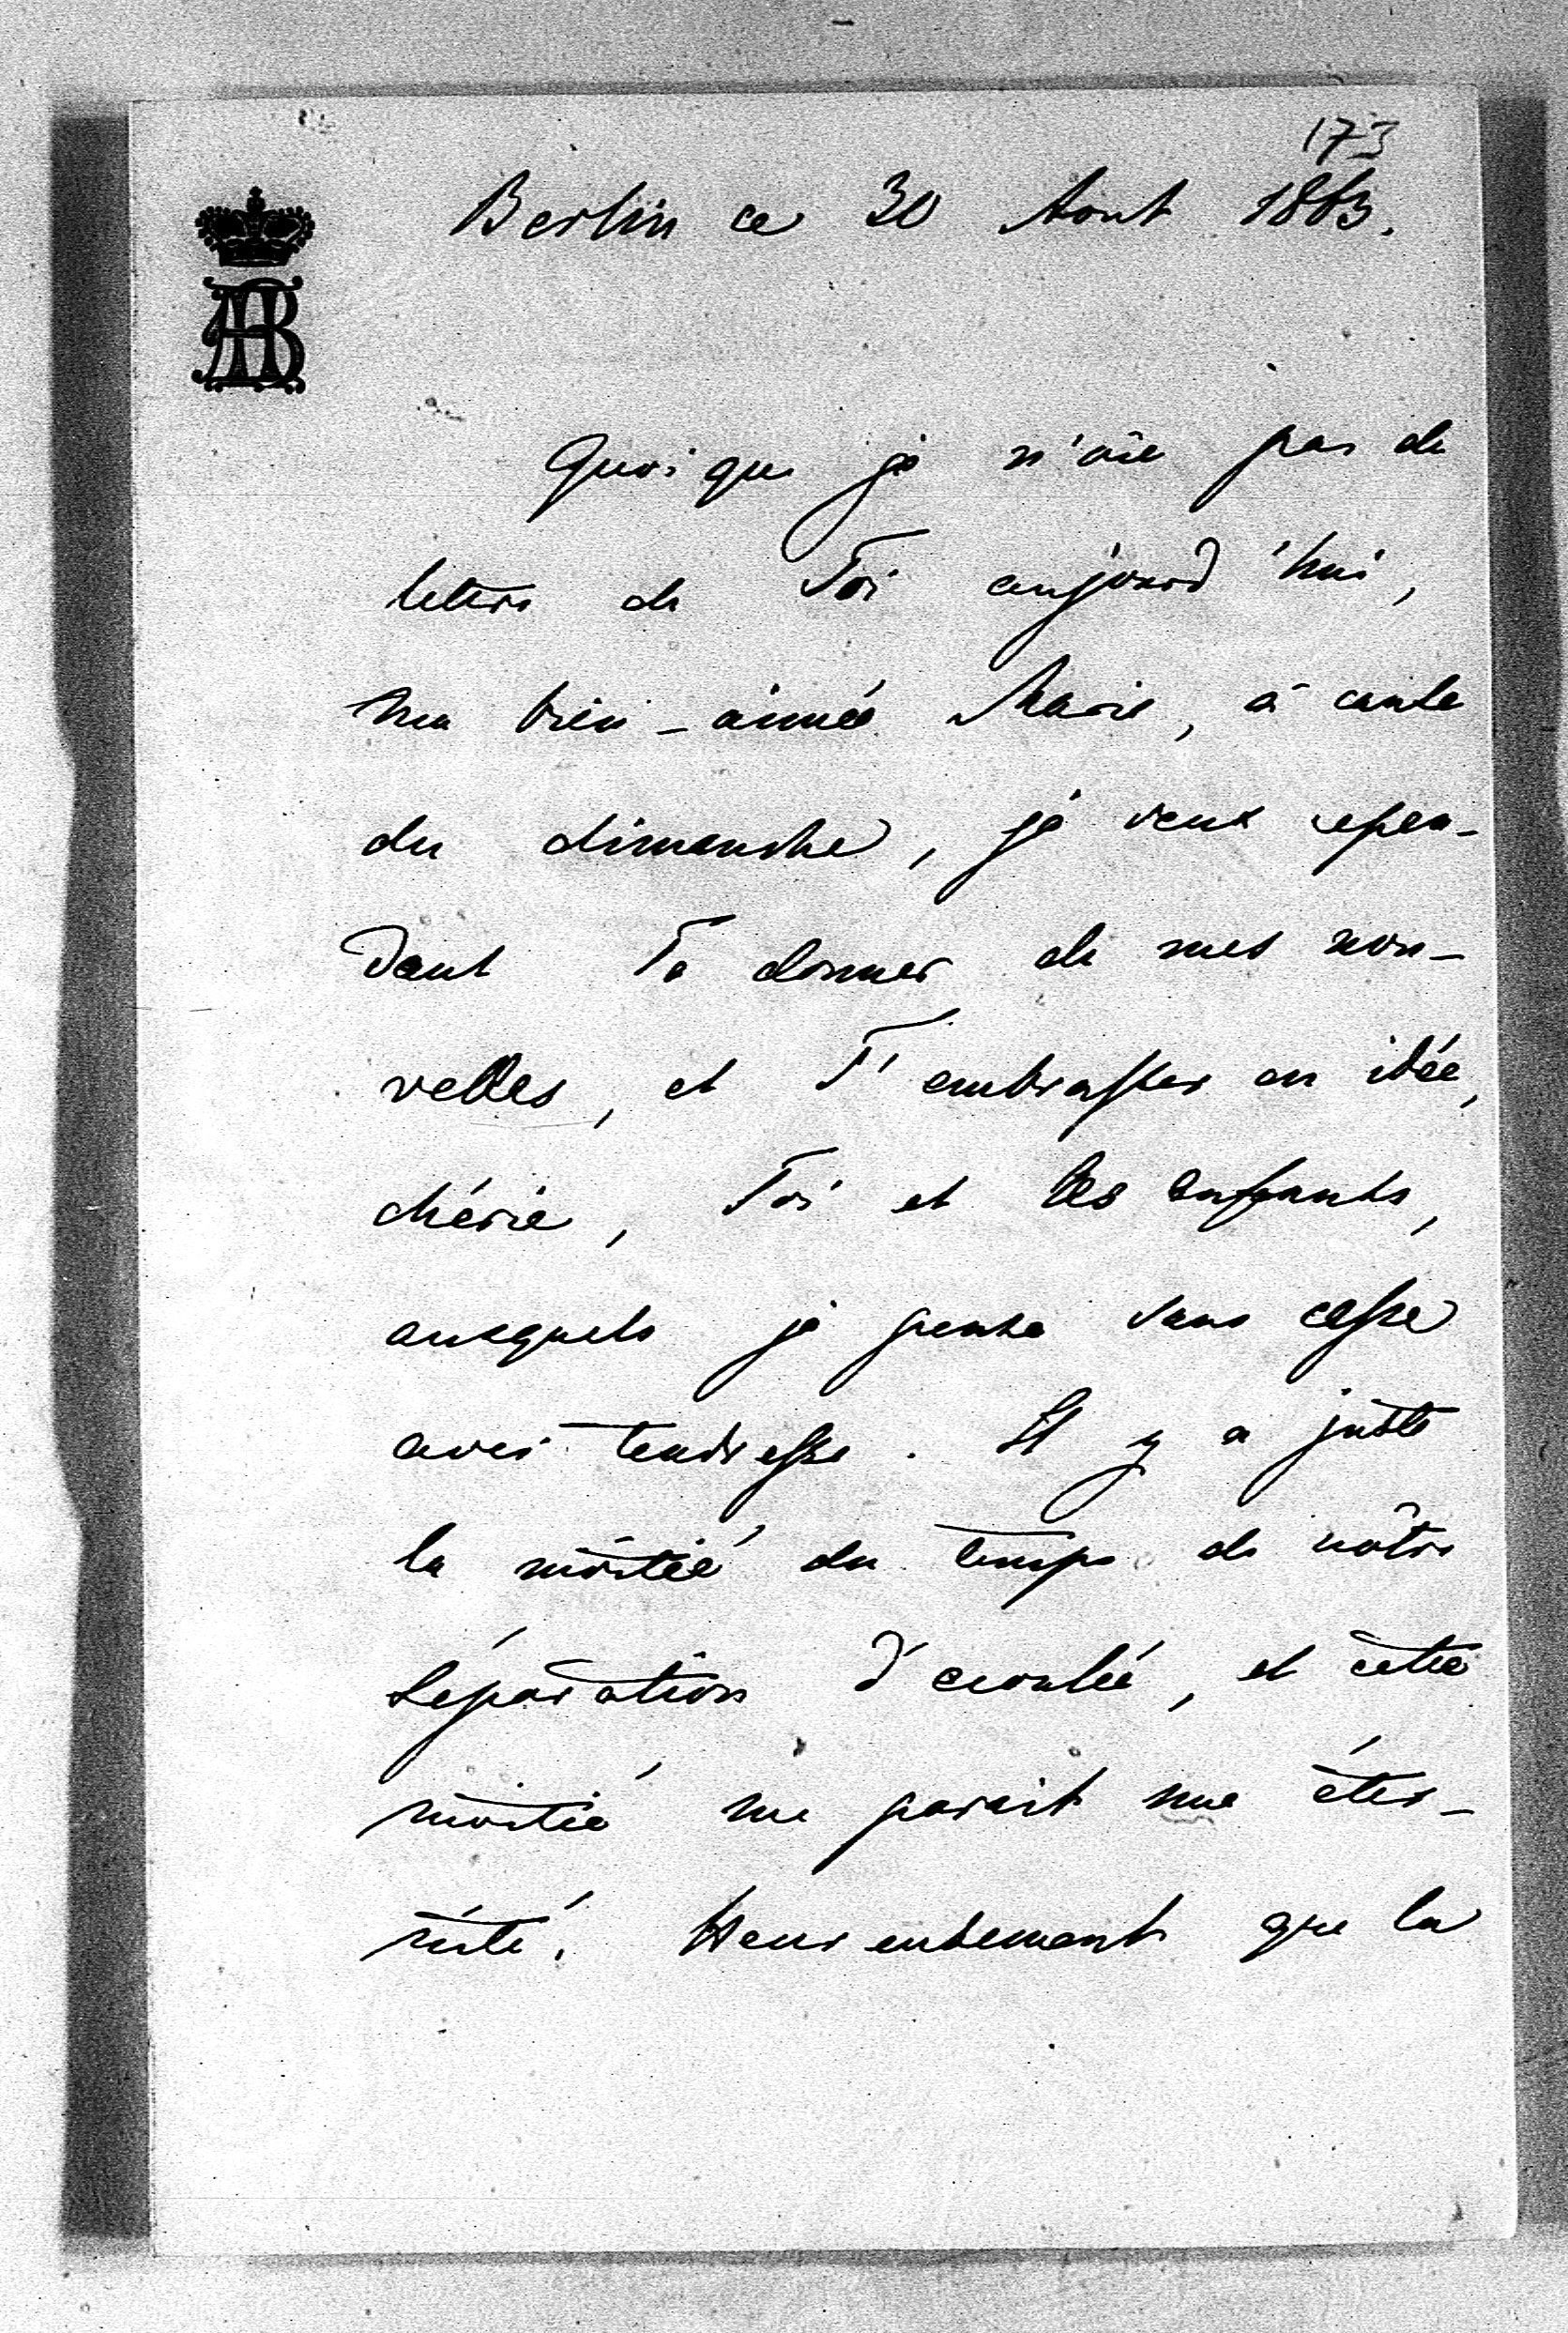 173
Berlin ce 30 Aout 1863.
AB
Quoique je n'aie pas de
lettre de Toi aujourd'hui,
ma bien-aimée Marie, à cause
du dimanche, je veux cepen-
dant Te donner de mes nou-
velles, et T'embrasser en idée,
chérie, Toi et les enfants,
auxquels je pense sans cesse
avec tendresse. Il y a juste
la moitié du temps de nôtre
séparation d'écoulée, et cette
moitié me parait une éter-
nité. Heureusement que la